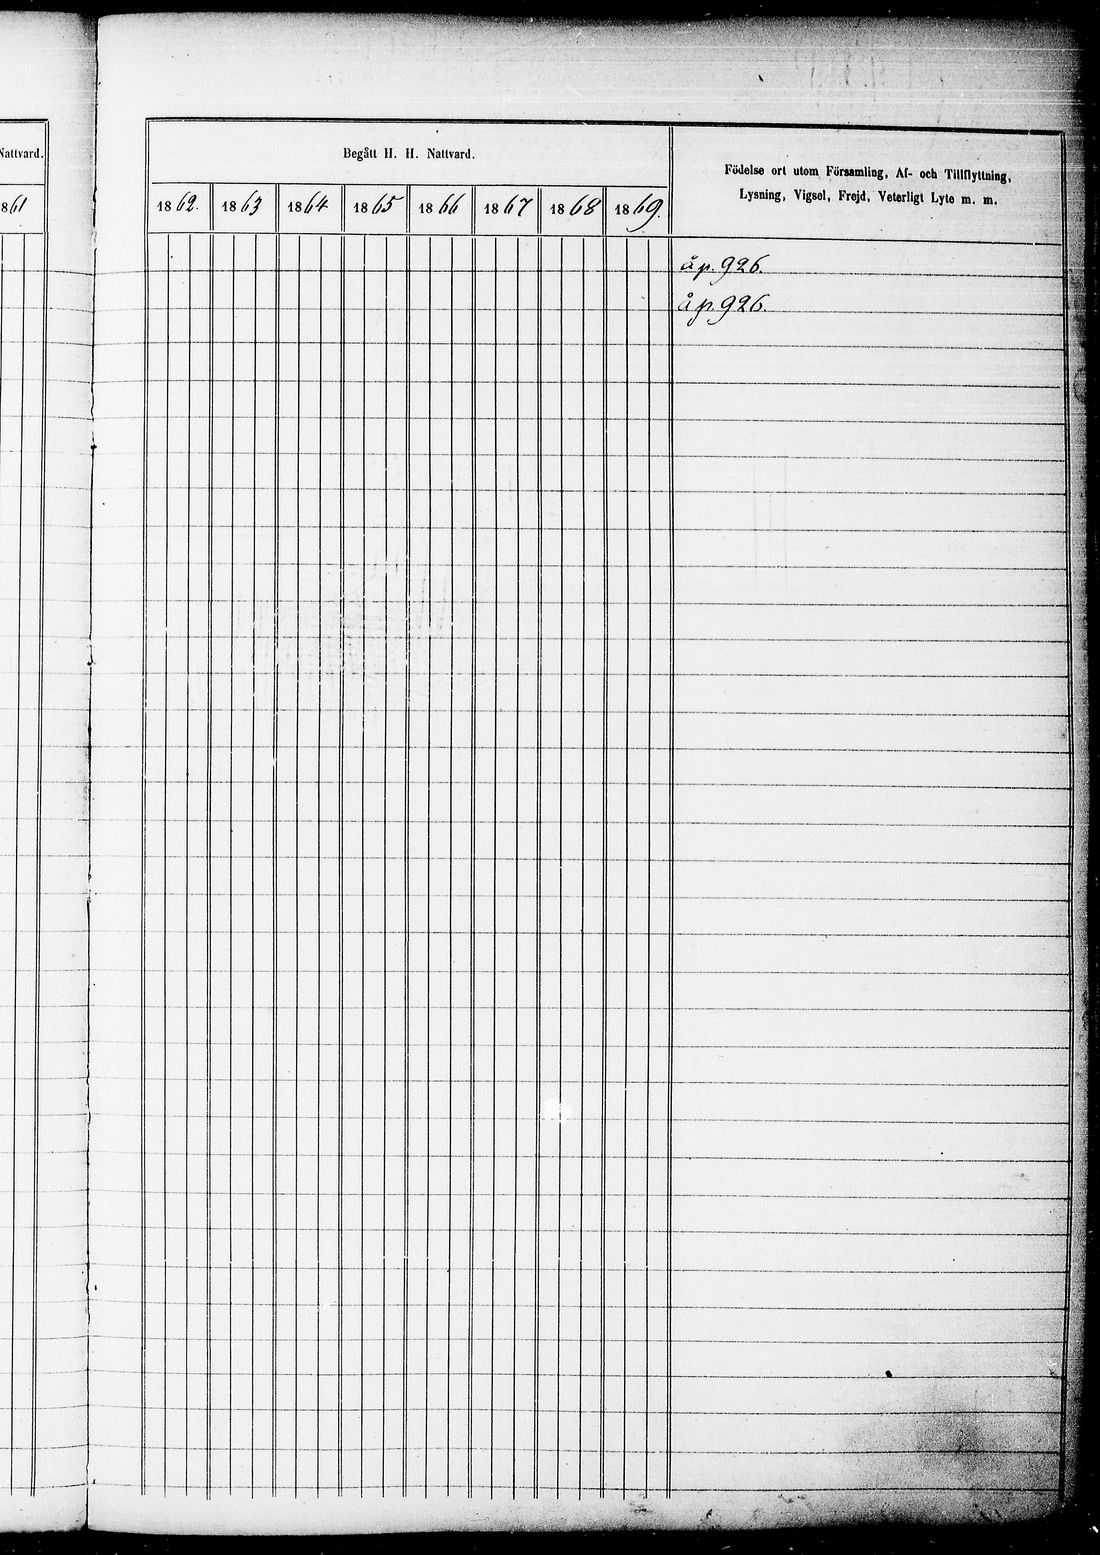 Nattvard.
861
Begått H. H. Nattvard.
Födelse ort utom Församling, Af- och Tillflyttning,
Lysning, Vigsel, Frejd, Veterligt Lyte m. m.
1862. 1863 1864 1865 1866 1867 1868 1869.
å p. 926.
å p. 926.